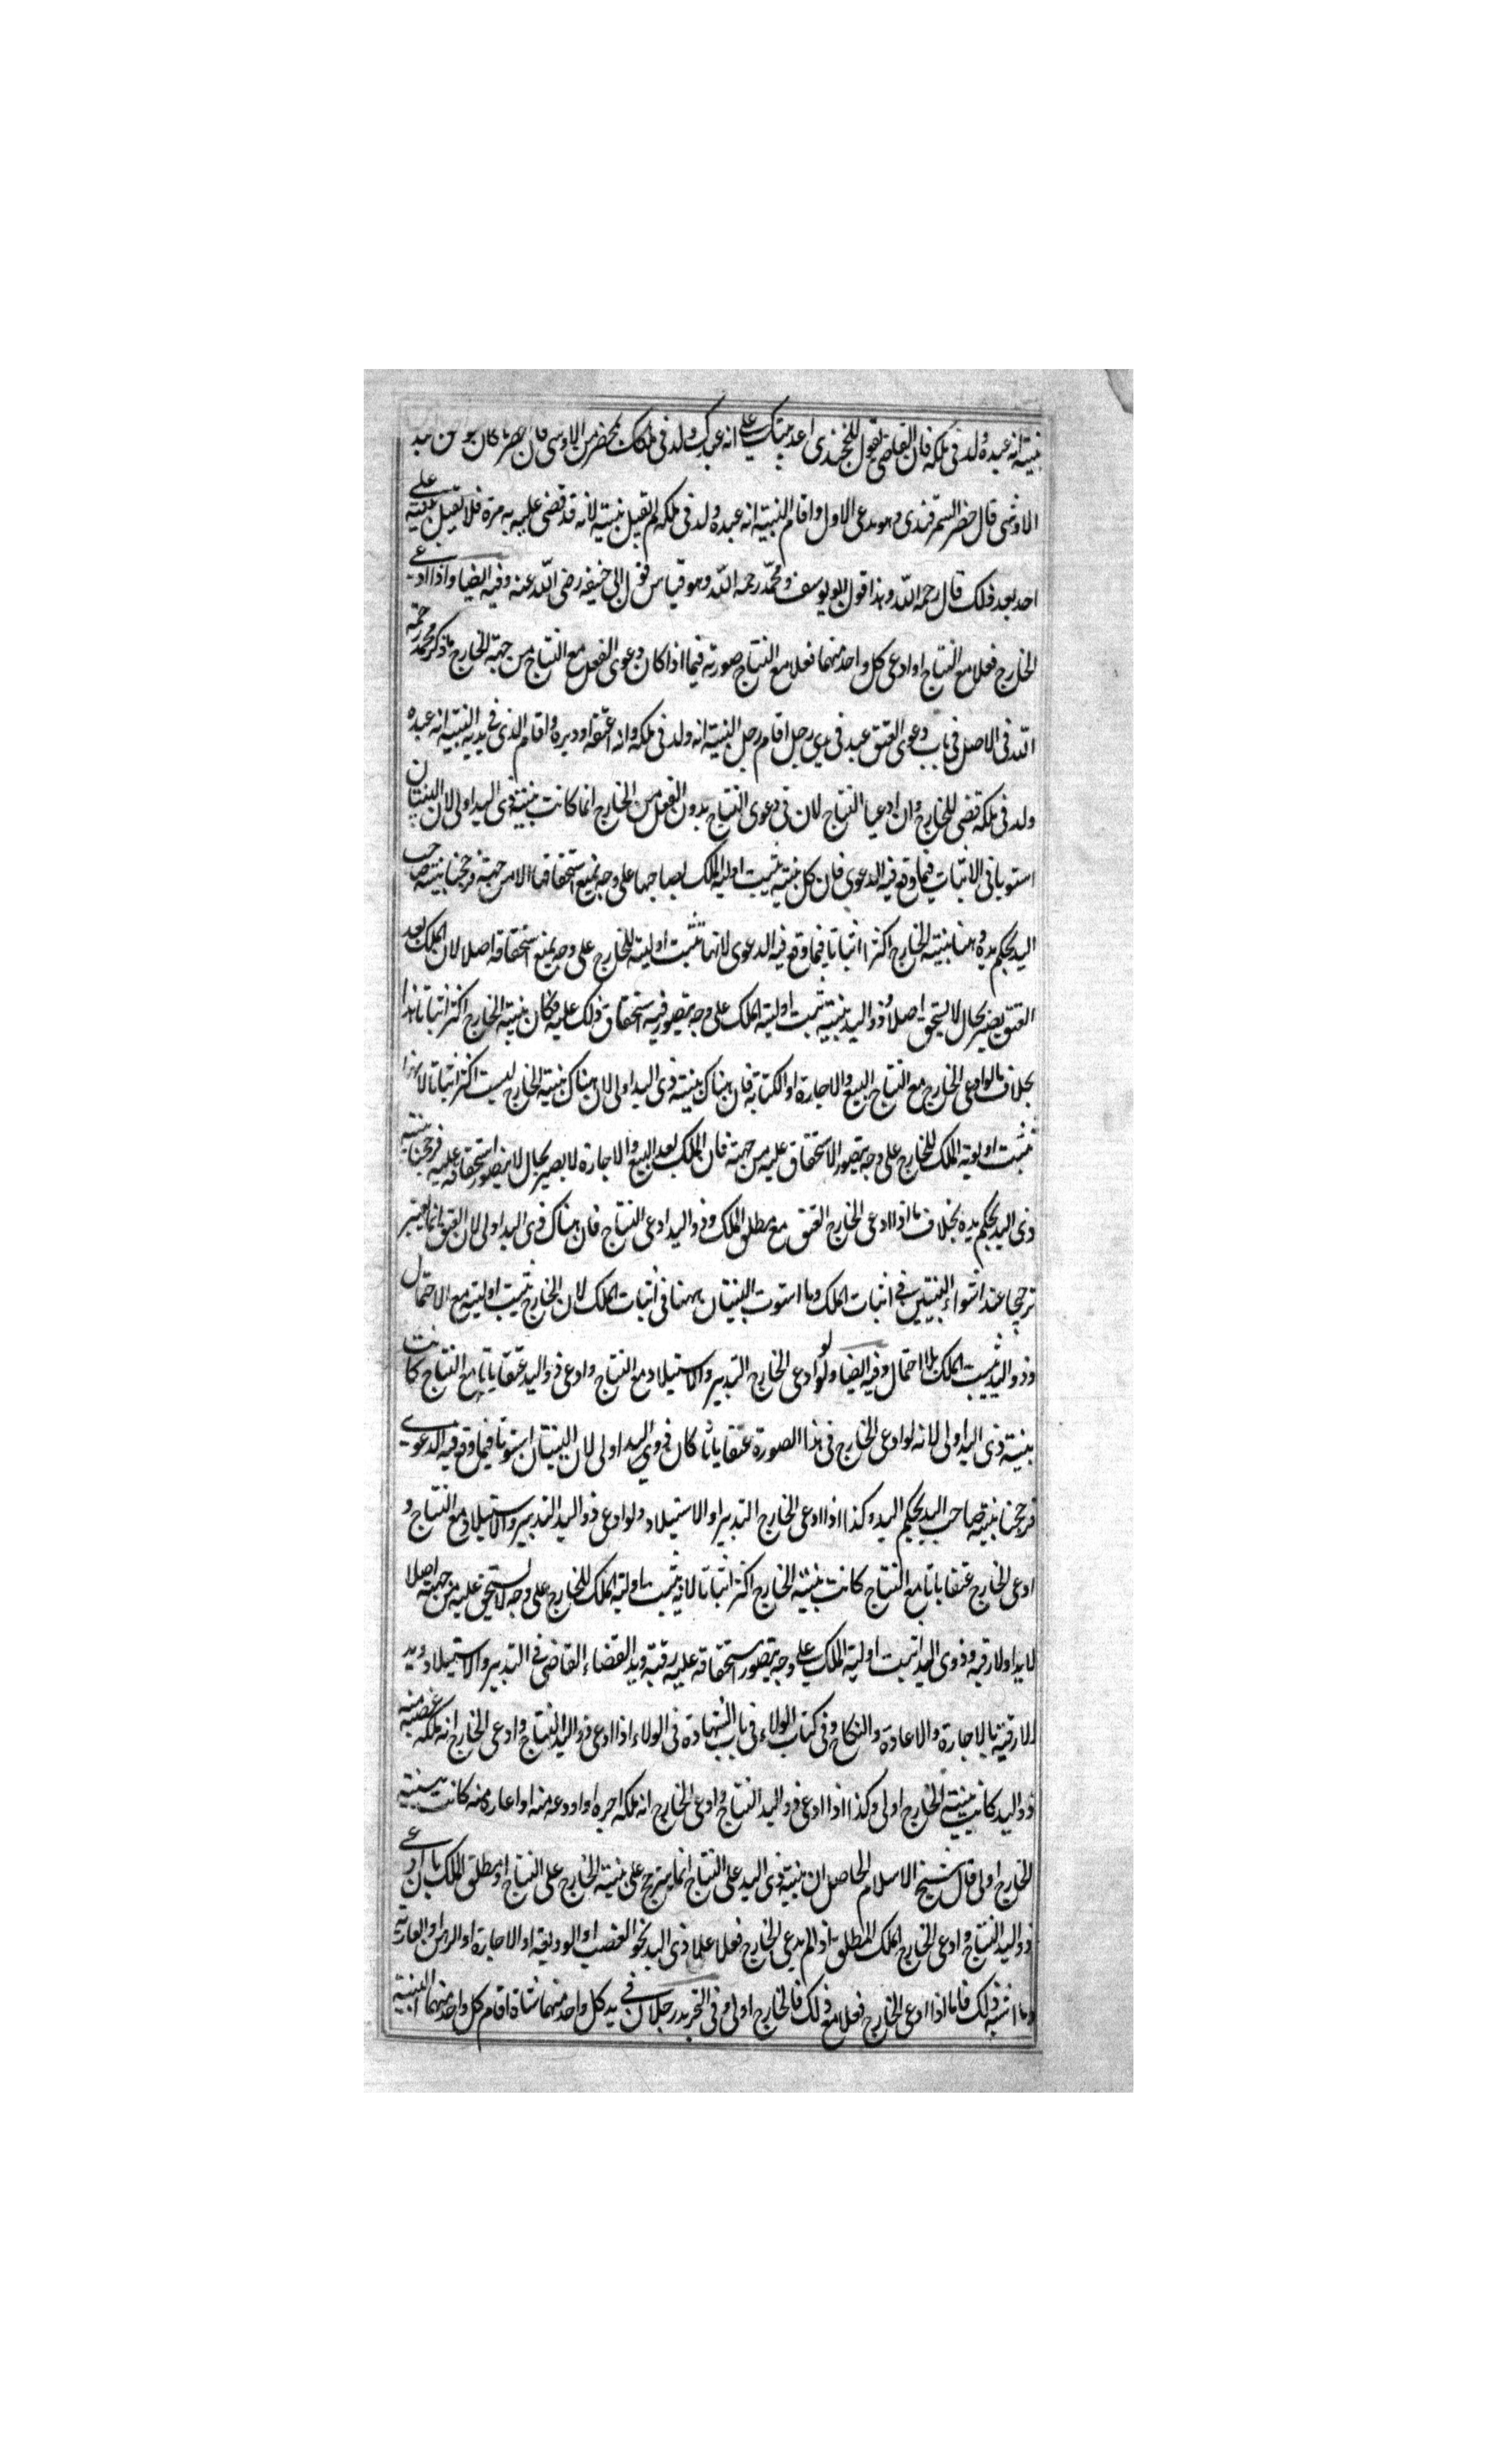 بينته انه عبده ولد فى ملكه فان القاضى يقول للخجندى اعد بينتك على انه عبدك ولد فى ملكك بمحضر من الاوشى فان
الاوشى قال حضر السمرقندى وهو مدعى الاول واقام البينة انه عبده ولد فى ملكه لم يقبل بينته لانه قد قضى عليه به مرة فلا تقبل بينته على
احد بعد ذلك قال رحمه الله وهذا قول ابو يوسف ومحمد رحمه الله وهو قياس قول ابى حنيفه رضى الله عنه وفيه ايضا واذا ادعى
الخارج فعلا مع النتاج او ادعى كل واحد منهما فعلا مع النتاج صورته فيما اذا كان دعوى الفعل مع النتاج من جهة الخارج ما ذكر محمد رحمه
الله فى الاصل فى باب دعوى العتق عبد فى يدى رجل اقام رجل البينة انه ولد فى ملكه وانه اعتقه او دبره واقام الذى فى يديه البينة انه عبده
ولد فى ملكه قضى للخارج وان ادعيا النتاج لان فى دعوى النتاج بدون الفعل من الخارج انما كانت بينة ذى اليد اولى لان البينتان
استويا فى الاثبات فيما وقع فيه الدعوى فان كل بينة يثبت اولية الملك لصاحبها على وجه يمنع استحقاقها الا من جهته فرجحنا بينة صاحب
اليد بحكم يده وههنا بينة الخارج اكثر اثباتا فيما وقع فيه الدعوى لانها تثبت اولية للخارج على وجه يمنع استحقاقه اصلا لان الملك بعد
العتق يصير بحال لا يستحق اصلا وذو اليد ببينته يثبت اولية الملك على وجه يتصور فيه استحقاق ذلك عليه فكان بينة الخارج اكثر اثباتا هذا
بخلاف ما لو ادعى الخارج مع النتاج البيع والاجارة او الكتابة فان هناك بينة ذى اليد اولى لان هناك بينة الخارج ليست اكثر اثباتا لانها
تثبت اولوية الملك للخارج على وجه يتصور الاستحقاق عليه من جهته فان الملك بعد البيع والاجارة لا يصير بحال لا يتصور استحقاقه عليه فرجحنا بينة
ذى اليد بحكم يده بخلاف ما اذا ادعى الخارج العتق مع مطلق الملك وذو اليد ادعى النتاج فان هناك ذى اليد اولى لان العتق انما يعتبر
ترجيحا عند استواء البينتين فى اثبات الملك وما استوت البينتان ههنا فى اثبات الملك لان الخارج يثبت اوليته مع الاحتمال
وذو اليد يثبت الملك بلا احتمال وفيه ايضا ولو ادعى الخارج التدبير والاستيلاد مع النتاج وادعى ذو اليد عتقا باتا مع النتاج كانت
بينة ذى اليد اولى لانه لو ادعى الخارج فى هذا الصورة عتقا باتا كان ذوى اليد اولى لان البينتان استوتا فيما وقع فيه الدعوى
فرجحنا بينة صاحب اليد بحكم اليد وكذا اذا ادعى الخارج التدبير او الاستيلاد ولو ادعى ذو اليد التدبير والاستيلاد مع النتاج و
ادعى الخارج عتقا باتا مع النتاج كانت بينة الخارج اكثر اثباتا لانه يثبت اولية الملك للخارج على وجه لا يستحق عليه من جهته اصلا
لا يدا ولا رقبة وذوى اليد اثبت اولية الملك على وجه يتصور استحقاقه عليه رقبة ويد القضاء القاضى فى التدبير والاستيلاد ويد
الا رقبة بالاجارة والاعادة والنكاح وفى كتاب الولاء فى باب الشهادة فى الولاء اذا ادعى ذو اليد النتاج وادعى الخارج انه ملكه غصبه منه
ذو اليد كانت بينة الخارج اولى وكذا اذا ادعى ذو اليد النتاج وادعى الخارج انه ملكه اجره او اودعه منه او اعاره منه كانت بينة
الخارج اولى قال شيخ الاسلام الحاصل ان بينة ذى اليد على النتاج انما يترجح على بينة الخارج على النتاج او مطلق الملك بان ادعى
ذو اليد النتاج وادعى الخارج الملك المطلق اذا لم يدعى الخارج فعلا على ذى اليد نحو الغصب او الوديعة او الاجارة او الرهن او العارية
وما اشبه ذلك فاما اذا ادعى الخارج فعلا مع ذلك فالخارج اولى وفى التجريد رجلان فى يد كل واحد منهما شاة اقام كل واحد منهما البينة